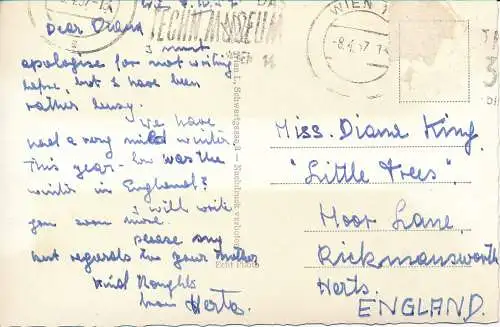 Dear Diana
I must
apologise for not writing
before, but I have been
rather busy.
We have
had a very mild winter
this year - how was the
winter in England?
I will write
you soon more.
please say
best regards to your mother
Kind thoughts
from Herta.
DAS
TECHN. MUSEUM
WIEN 14
WIEN
-8.4.57
Wien I., Schwertgasse 3 — Nachdruck verboten
Echt Photo
Miss. Diane King,
"Little Trees"
Moor Lane,
Rickmansworth
Herts.
ENGLAND.